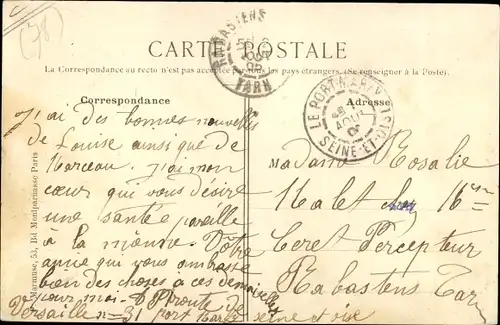 (78)
CARTE POSTALE
La Correspondance au recto n'est pas acceptée par tous les pays étrangers. (Se renseigner à la Poste).
Correspondance
J'ai des bonnes nouvelles
de Louise ainsi que de
Marceau. J'ai mon
cœur qui vous désire
une santé pareille
à la mienne. Votre
amie qui vous embrasse
bien des choses à ces demoiselles
Versaille n=31 port Marly seine et oise
Adresse
Madame Rosalie
Malet chez Mr
Ceret Percepteur
Rabastens Tarn
RABASTENS
TARN
LE PORT-MARLY
AOUT
SEINE-ET-OISE
Marmuse, 53, Bd Montparnasse Paris